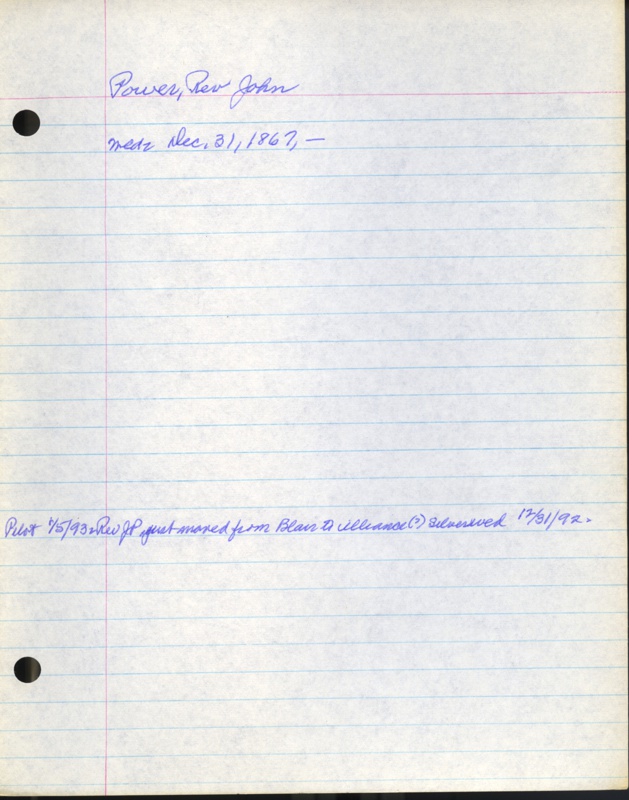 Power, Rev John
Dec. 31, 1867, —
Pilot 1/5/93: Rev JP just moved from Blair to Alliance(?) 12/31/92.